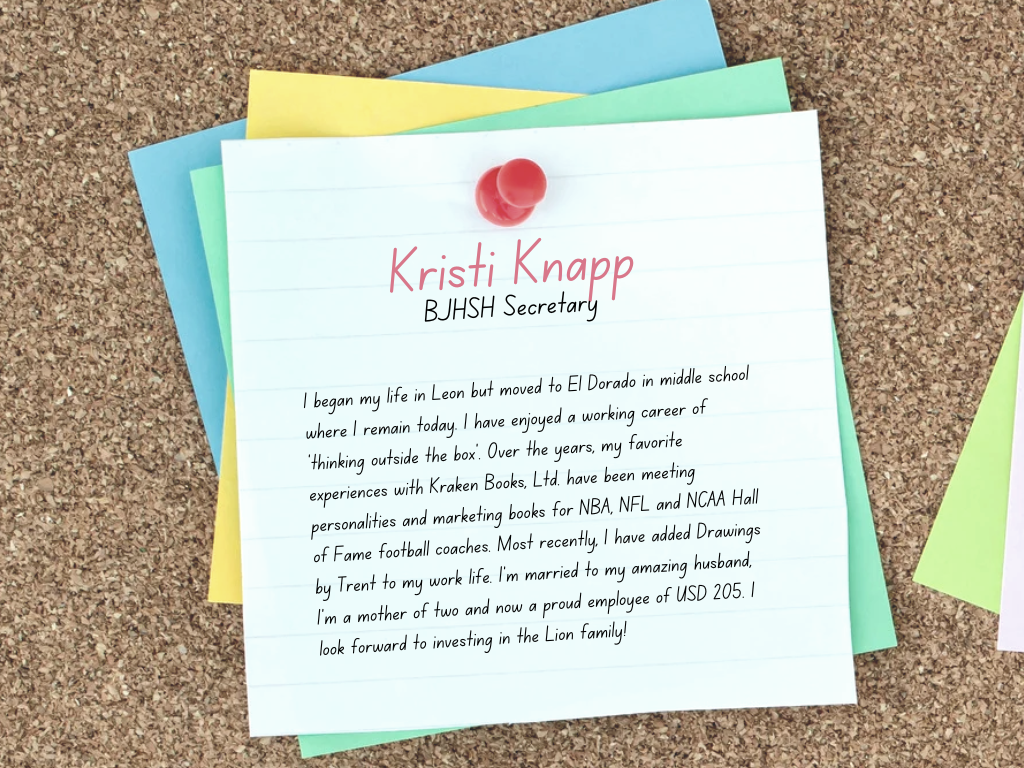 Kristi Knapp
BJHSH Secretary
I began my life in Leon but moved to El Dorado in middle school
where I remain today. I have enjoyed a working career of
'thinking outside the box'. Over the years, my favorite
experiences with Kraken Books, Ltd. have been meeting
personalities and marketing books for NBA, NFL and NCAA Hall
of Fame football coaches. Most recently, I have added Drawings
by Trent to my work life. I'm married to my amazing husband,
I'm a mother of two and now a proud employee of USD 205. I
look forward to investing in the Lion family!